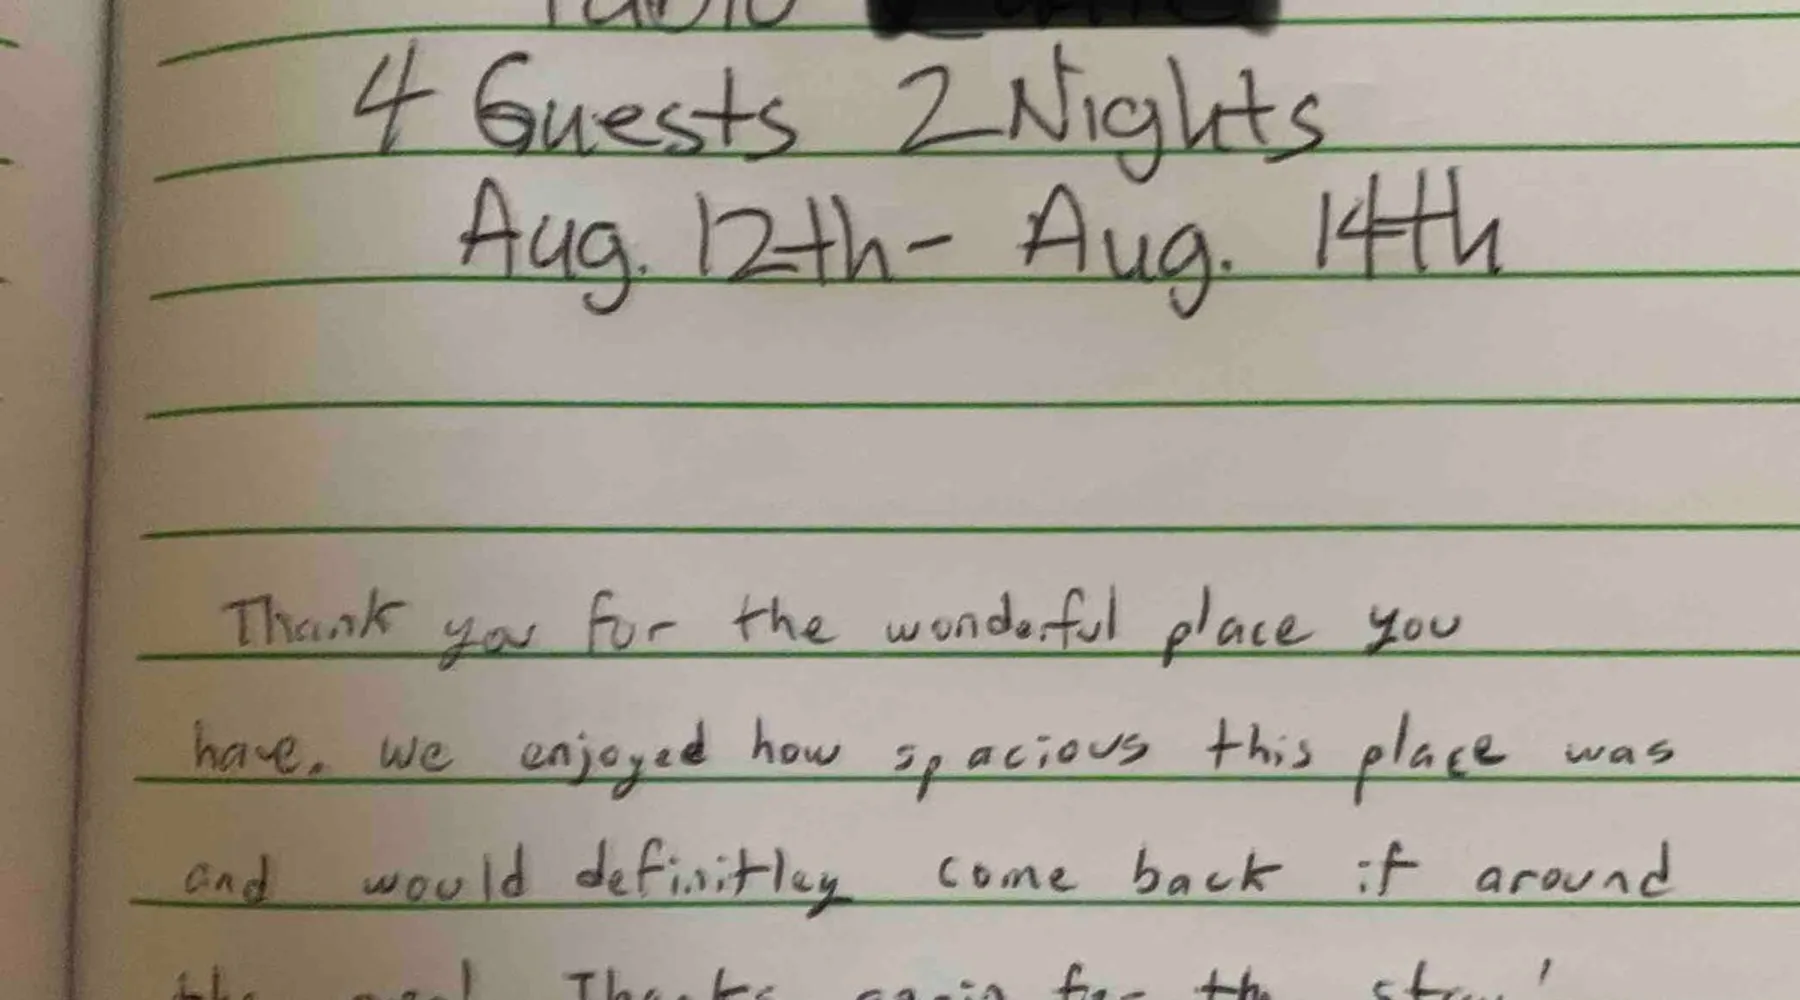 4 Guests 2 Nights
Aug. 12th - Aug. 14th
Thank you for the wonderful place you
have. We enjoyed how spacious this place was
and would definitley come back if around
Thanks again for th stay!